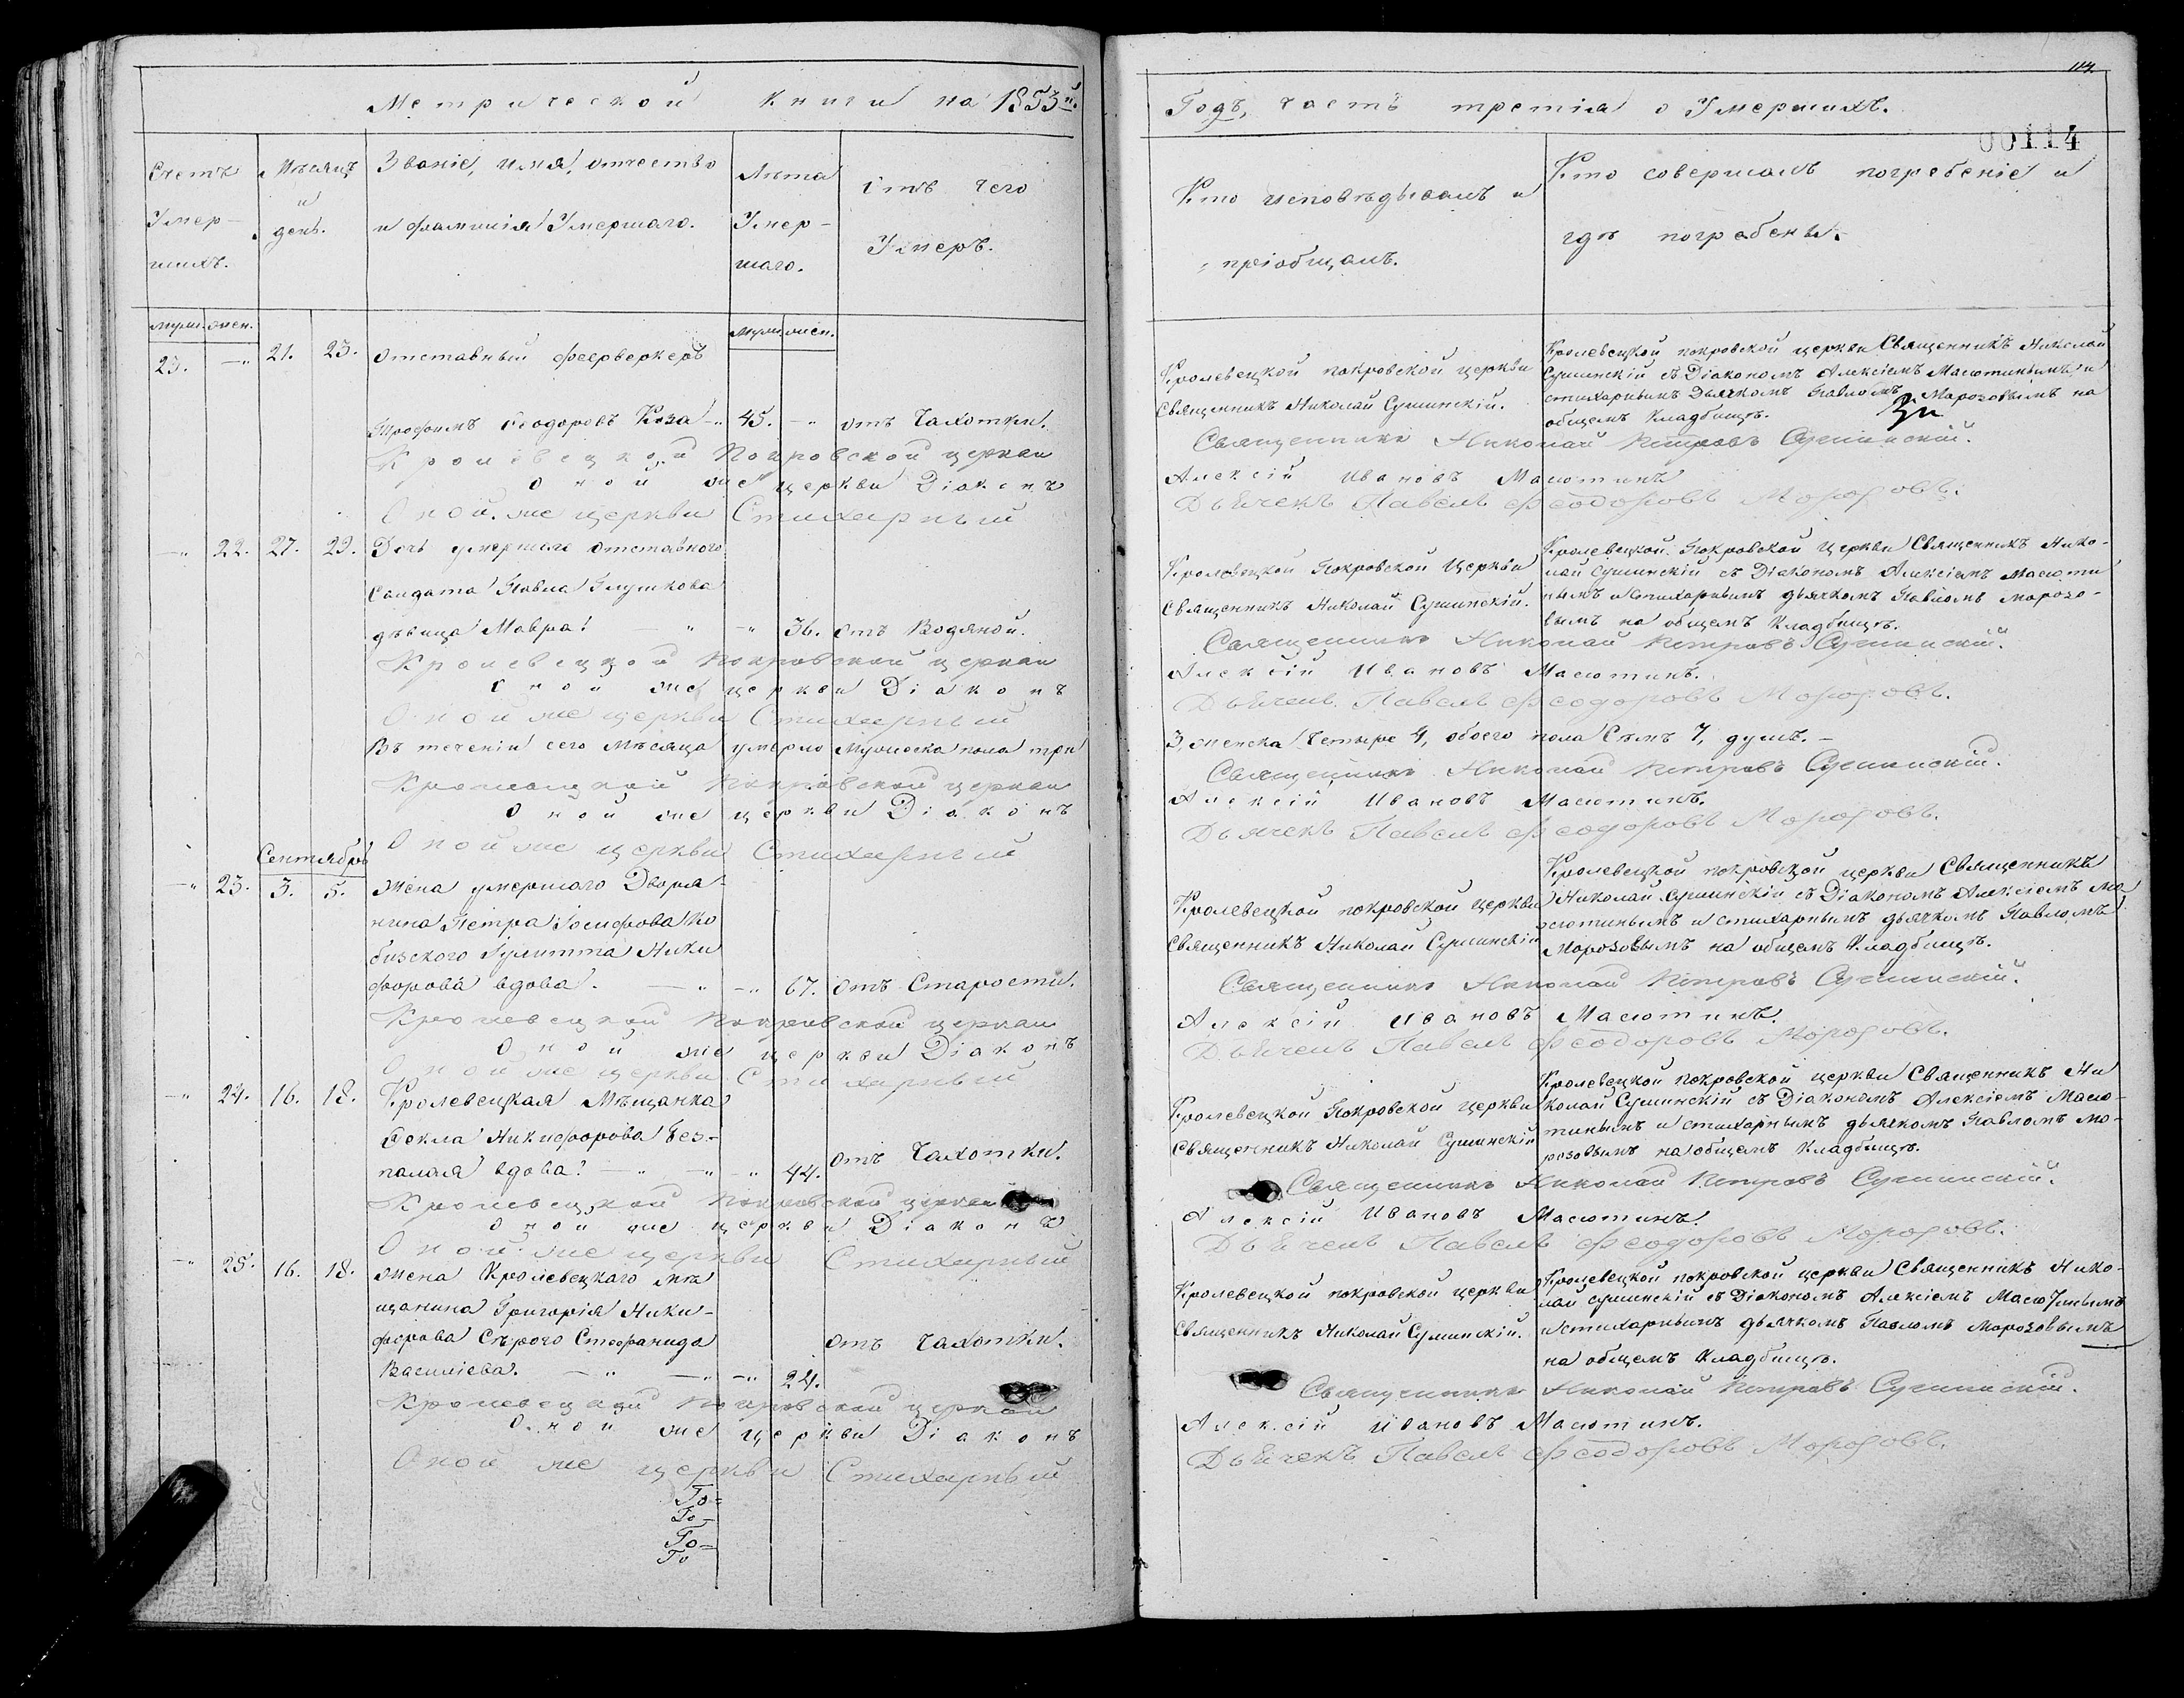 Метрической книги на 1853й.
Счетъ Умер-шихъ.
Мѣсяцъ и день.
Званіе, имя, отчество и фамилія Умершаго.
Лѣта Умер-шаго.
Отъ чего Умеръ.
муж. жен.
муж. жен.
23. —„ 21. 23. Отставный феерверкеръ
Трофимъ Ѳеодоровъ Коза —„ 45. —„ отъ Чахотки.
Кролевецкой Покровской церкви
Оной же церкви Діаконъ
Оной же церкви Стихарный
—„ 22. 27. 29. Дочь умершаго отставного
Солдата Павла Глушкова
дѣвица Мавра. — „ —„ 36. отъ Водяной.
Кролевецкой Покровской церкви
Оной же церкви Діаконъ
Оной же церкви Стихарный
Въ теченіи сего Мѣсяца умерло Мужеска пола три
Кролевецкой Покровской церкви
Оной же церкви Діаконъ
Оной же церкви Стихарный
Сентябрь
—„ 23. 3. 5. Жена умершаго Дворя-
нина Петра Іосифова Ко
бизского Іулитта Ники
форова вдова. — „ —„ 67. отъ Старости.
Кролевецкой Покровской церкви
Оной же церкви Діаконъ
Оной же церкви Стихарный
—„ 24. 16. 18. Кролевецкая Мѣщанка
Ѳекла Никифорова Без-
палая вдова. — „ —„ —„ 44. отъ Чахотки.
Кролевецкой Покровской церкви
Оной же церкви Діаконъ
Оной же церкви Стихарный
—„ 25. 16. 18. Жена Кролевецкаго мѣ
щанина Григорія Ники-
форова Сѣрого Стефанида
Василіева. — „ —„ —„ 24. отъ Чахотки.
Кролевецкой Покровской церкви
Оной же церкви Діаконъ
Оной же церкви Стихарный
То-
То-
То-
То
114.
Годъ, часть третія о Умершихъ.
00114
Кто исповѣдывалъ и пріобщалъ.
Кто совершалъ погребеніе и гдѣ погребены.
Кролевецкой покровской церкви
Священникъ Николай Сушинскій.
Кролевецкой покровской церкви Священникъ Николай
Сушинскій съ Діакономъ Алексіемъ Масютинымъ и
стихарнымъ Дьячкомъ Павломъ Морозовымъ на
общемъ Кладбищѣ.
Священникъ Николай Петровъ Сушинскій.
Алексій Ивановъ Масютинъ
Дьячекъ Павелъ Феодоровъ Морозовъ.
Кролевецкой Покровской Церкви
Священникъ Николай Сушинскій.
Кролевецкой Покровской Церкви Священникъ Нико-
лай Сушинскій съ Діакономъ Алексіемъ Масюти
нымъ и стихарнымъ дьячкомъ Павломъ Морозо-
вымъ на общемъ Кладбищѣ.
Священникъ Николай Петровъ Сушинскій.
Алексій Ивановъ Масютинъ.
Дьячекъ Павелъ Феодоровъ Морозовъ.
3, женска Четыре 4, обоего пола Семь 7, душъ. —
Священникъ Николай Петровъ Сушинскій.
Алексій Ивановъ Масютинъ.
Дьячекъ Павелъ Феодоровъ Морозовъ.
Кролевецкой покровской церкви
Священникъ Николай Сушинскій
Кролевецкой покровской церкви Священникъ
Николай Сушинскій съ Діакономъ Алексіемъ Ма
сютинымъ и стихарнымъ дьячкомъ Павломъ
Морозовымъ на общемъ Кладбищѣ.
Священникъ Николай Петровъ Сушинскій.
Алексій Ивановъ Масютинъ.
Дьячекъ Павелъ Феодоровъ Морозовъ.
Кролевецкой Покровской церкви
Священникъ Николай Сушинскій
Кролевецкой покровской церкви Священникъ Ни
колай Сушинскій съ Діакономъ Алексіемъ Масю-
тинымъ и стихарнымъ дьячкомъ Павломъ Мо-
розовымъ на общемъ Кладбищѣ.
Священникъ Николай Петровъ Сушинскій.
Алексій Ивановъ Масютинъ.
Дьячекъ Павелъ Феодоровъ Морозовъ.
Кролевецкой покровской церкви
Священникъ Николай Сушинскій.
Кролевецкой покровской церкви Священникъ Нико-
лай Сушинскій съ Діакономъ Алексіемъ Масютинымъ
и стихарнымъ дьячкомъ Павломъ Морозовымъ
на общемъ Кладбищѣ.
Священникъ Николай Петровъ Сушинскій.
Алексій Ивановъ Масютинъ.
Дьячекъ Павелъ Феодоровъ Морозовъ.